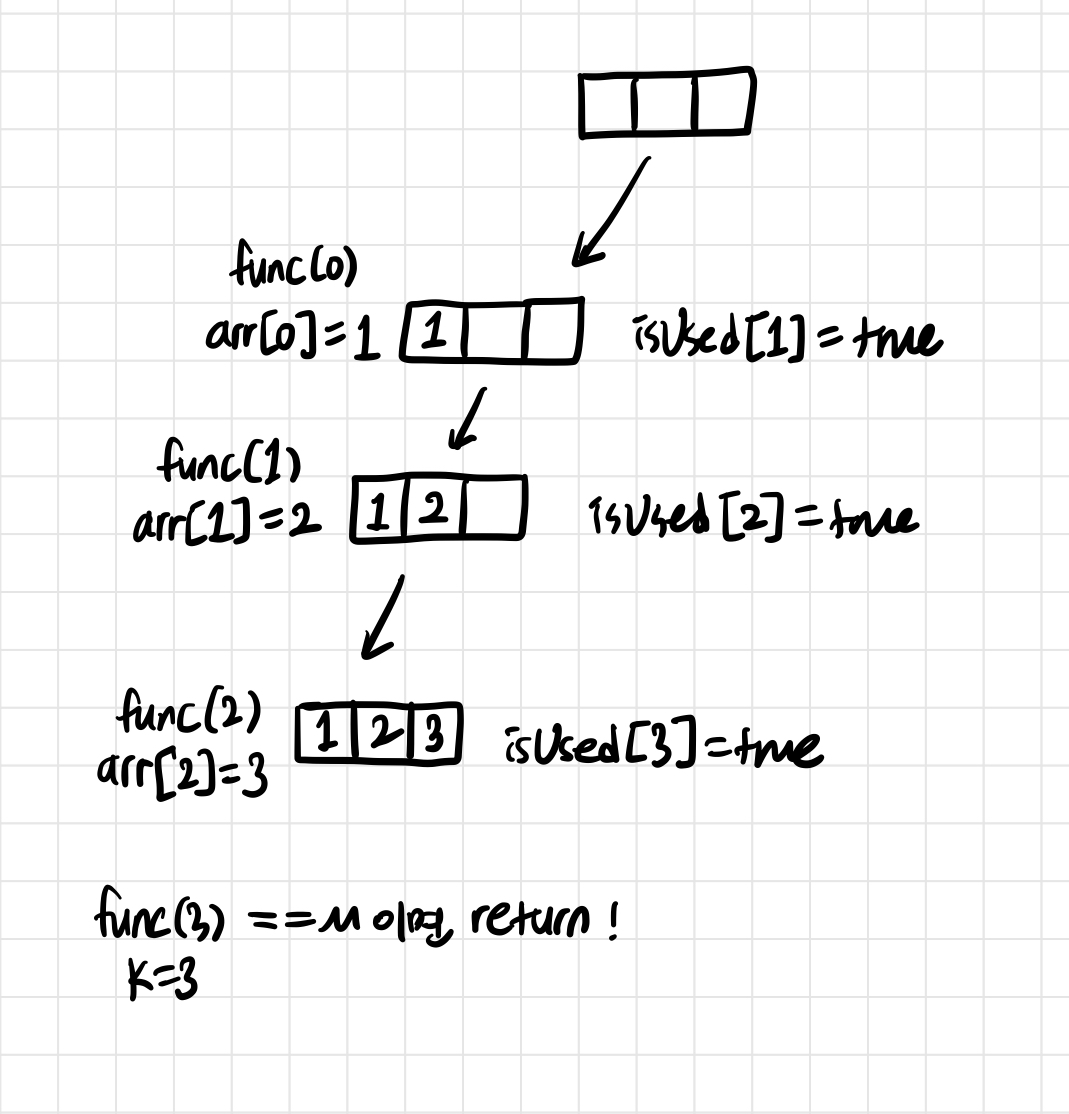 func(0)
arr[0]=1 1 isUsed[1]=true
func(1)
arr[1]=2 1 2 isUsed[2]=true
func(2)
arr[2]=3 1 2 3 isUsed[3]=true
func(3) ==M 이므로 return!
K=3